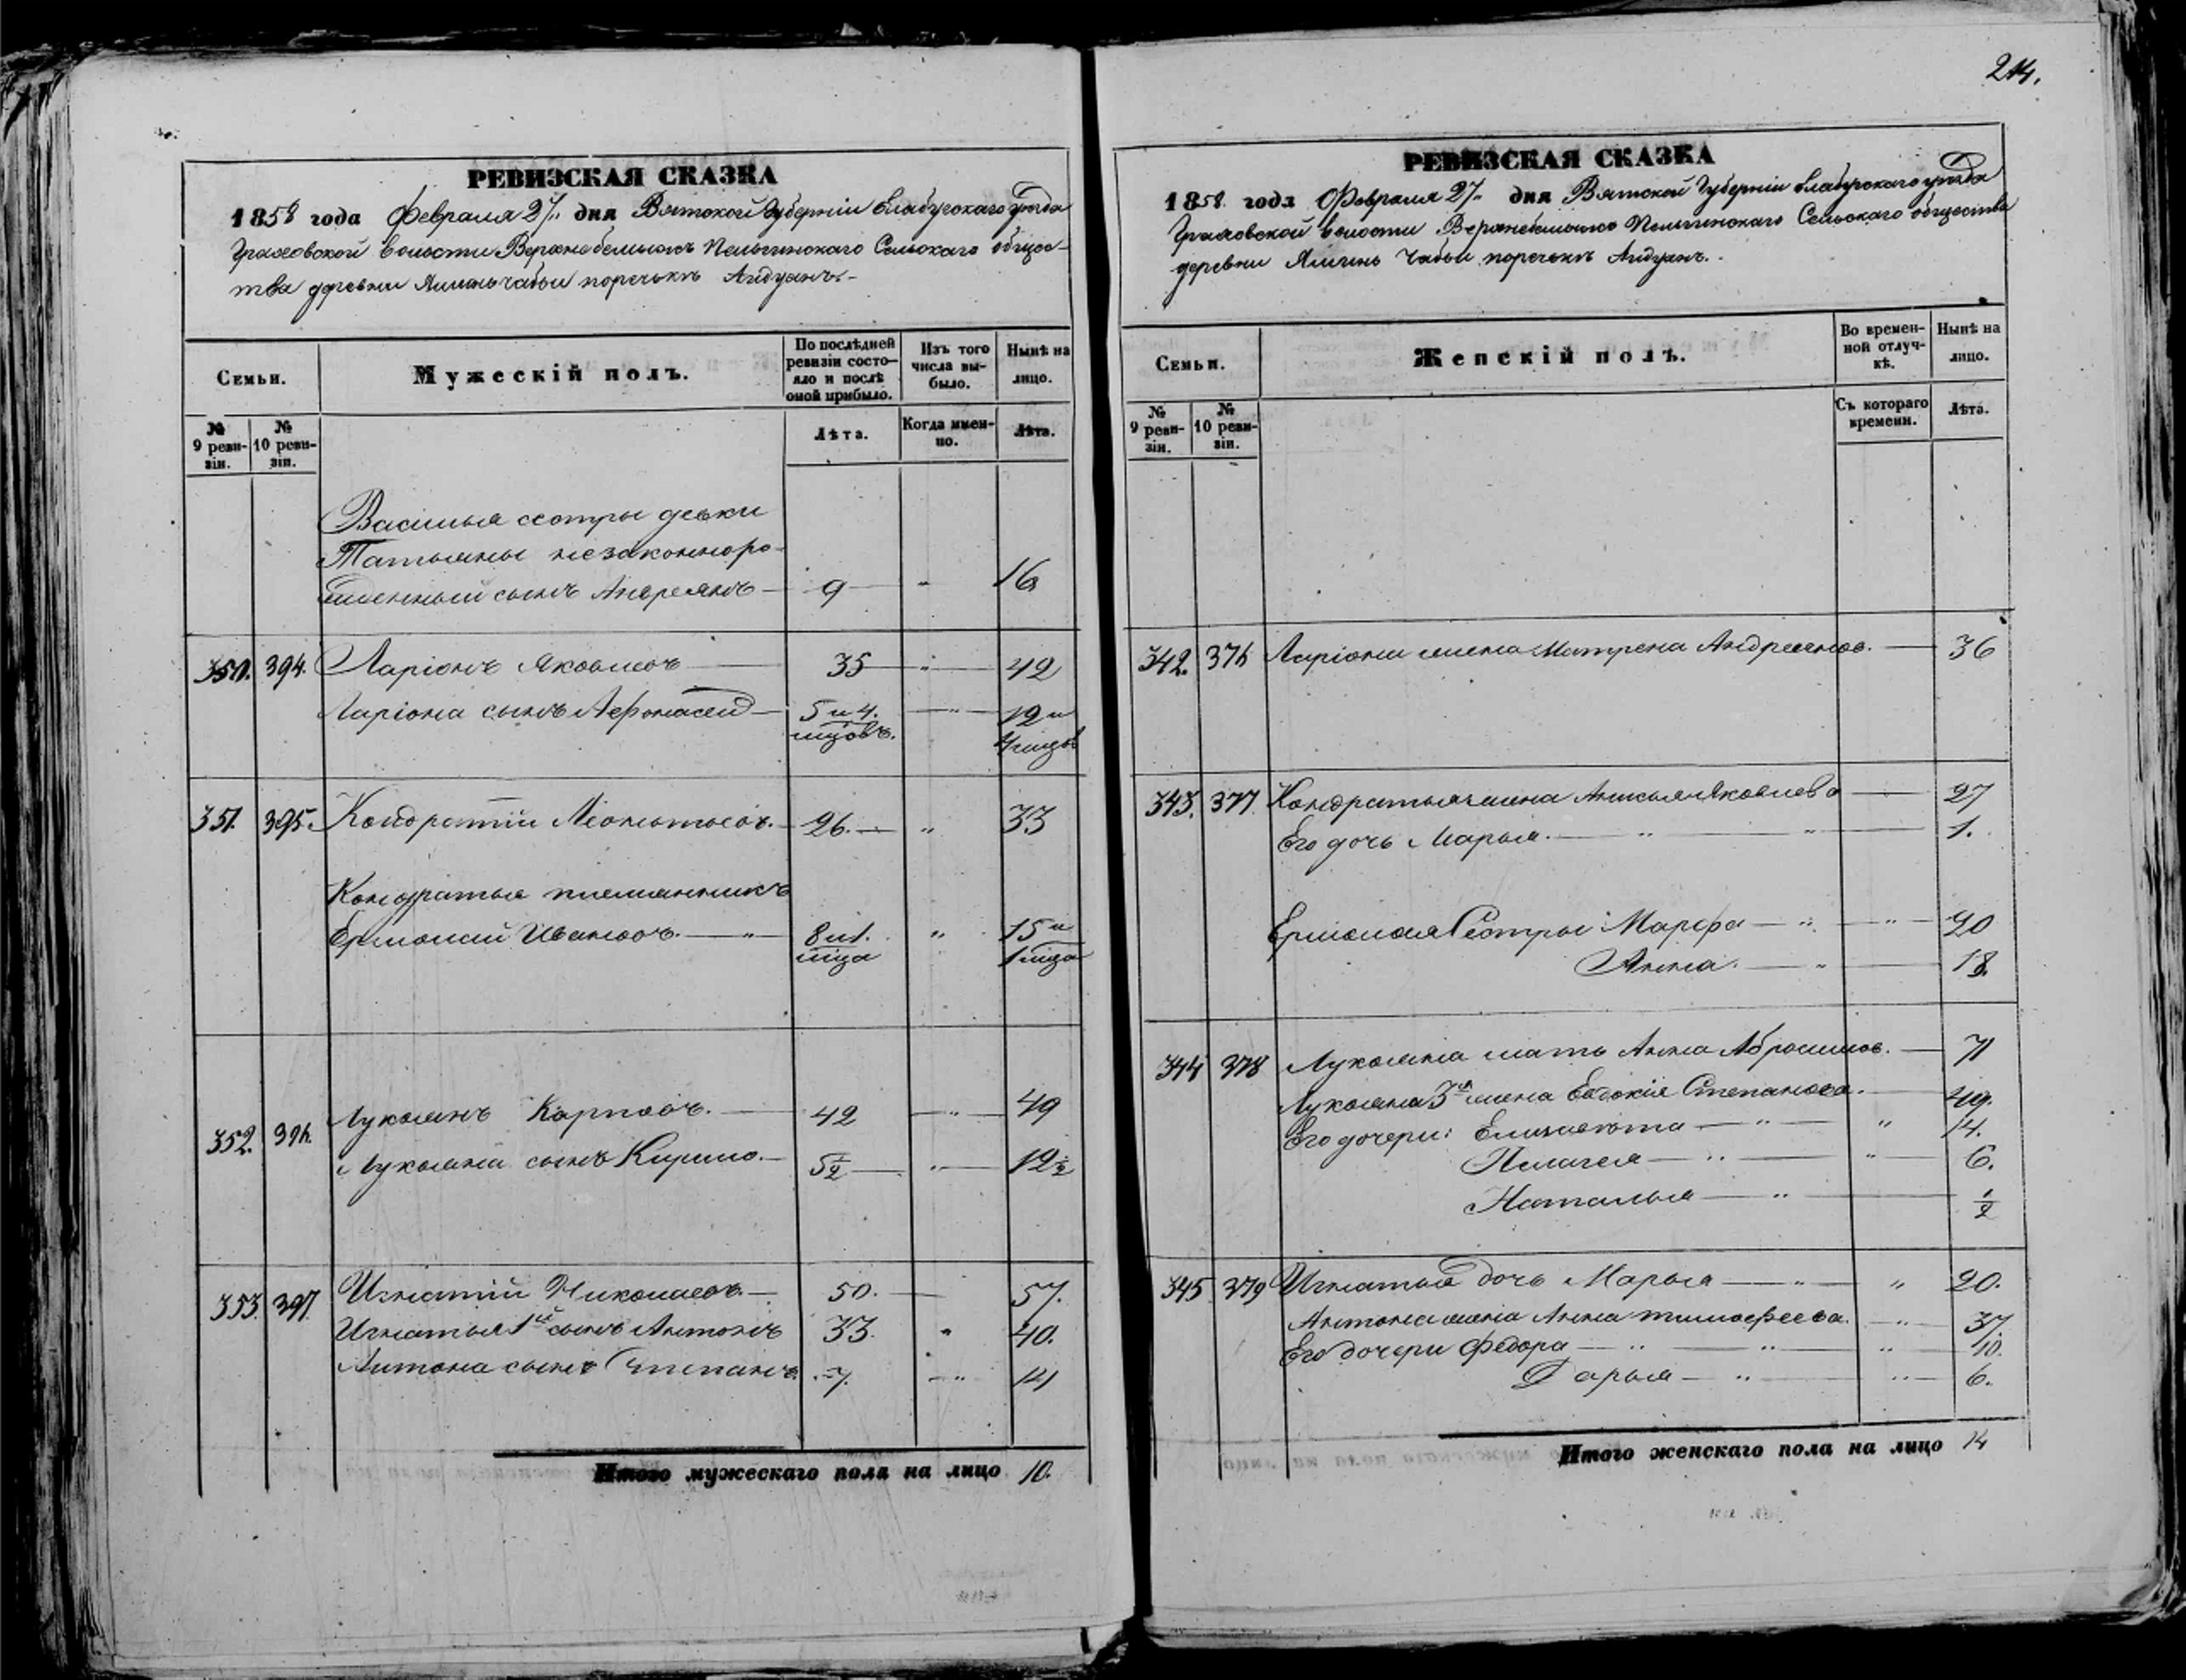 214.
РЕВИЗСКАЯ СКАЗКА
1858 года Февраля 27. дня Вятской Губерніи Елабугскаго Уезда
Граховской волости Сельскаго общес-
тва деревни поречькѣ Айдуанъ.-
Семьи.
Мужескій полъ.
По послѣдней ревизіи состо-яло и послѣ оной прибыло.
Изъ того числа вы-было.
Нынѣ на лицо.
№ 9 реви-зіи.
№ 10 реви-зіи.
Лѣта.
Когда имен-но.
Лѣта.
Василья сестры девки
Татьяны незаконноро-
жденный сынъ Андреянъ — 9 — " 16
350. 394. Ларіонъ Яковлевъ — 35 — " — 42
Ларіона сынъ Афонасей — 5 и 4. мцовъ. — " — 12 и 4 мцов
351. 395. Кондратій Леонтьевъ. 26. — " 33
Кондратья племянникъ
Ермолай Ивановъ. — " 8 и 1. мца " 15 и 1 мца
352. 396. Лукоянъ Карповъ. — 42 — " — 49
Лукояна сынъ Кирило. — 5 1/2 — " — 12 1/2
353. 397 Игнатій Николаевъ — 50. — 57.
Игнатья 1й сынъ Антонъ 33. " 40.
Антона сынъ Степанъ. 7. — " 14
Итого мужескаго пола на лицо 10.
РЕВИЗСКАЯ СКАЗКА
1858. года Февраля 27. дня Вятской Губерніи Елабугскаго уезда
Граховской волости Сельскаго общества
деревни поречькѣ Айдуанъ.
Семьи.
Женскій полъ.
Во времен-ной отлуч-кѣ.
Нынѣ на лицо.
№ 9 реви-зіи.
№ 10 реви-зіи.
Съ котораго времени.
Лѣта.
342. 376 Ларіона жена Матрена Андреянов. — 36
343. 377. Кондратья жена Яковлева — 27
Его дочь Марья. — " " — 1.
Ермолая Сестры: Марфа — " — " — 20
Анна. — " — 18.
344 378 Лукояна мать Анна Абросимов. — 71
Лукояна 3я жена Евдокія Степанова. — 49.
Его дочери: Елизавета — " — " 14.
Пелагея — " — " 6.
Наталья — " — 1/2
345 379 Игнатья дочь Марья — " — " 20.
Антона жена Анна тимофеева. — " — 37
Его дочери Федора — " — " — " 10.
Дарья — " — " — 6.
Итого женскаго пола на лицо 14